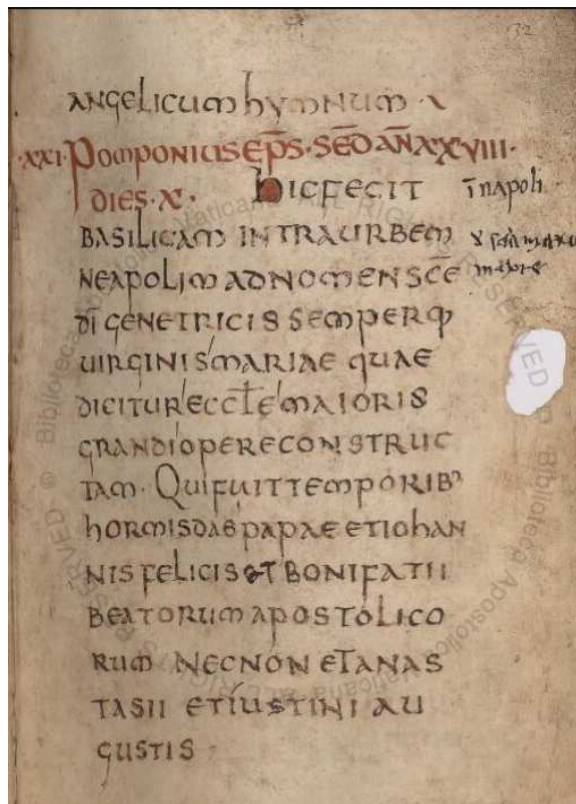 32
angelicum hymnum ·
·xxi· Pomponius ep̄s · sed̄ an̄ xxviii ·
dies · x · hic fecit
in̄ napoli
basilicam intra urbem
neapolim ad nomen sc̄e
maiore
dī genetricis semperq;
uirginis mariae quae
dicitur eccl̄e maioris
grandi opere construc
tam · Qui fuit temporib'
hormisdae papae et iohan
nis felicis et bonifatii
beatorum apostolico
rum necnon et anas
tasii et iustini au
gustis